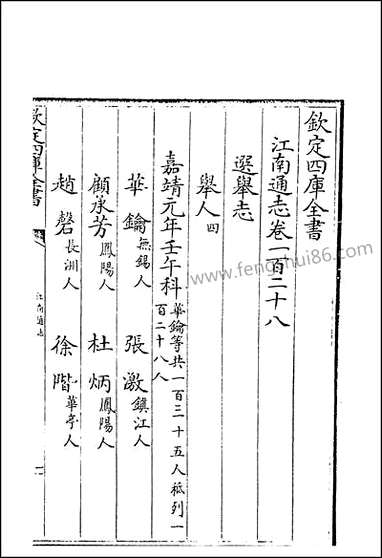 欽定四庫全書
江南通志卷一百二十八
選舉志
舉人四
嘉靖元年壬午科華鑰等共一百三十五人秪列一百二十八人
華鑰無錫人 張激鎮江人
顧承芳鳳陽人 杜炳鳳陽人
趙磬長洲人 徐階華亭人
欽定四庫全書
江南通志
www.fengshui86.com